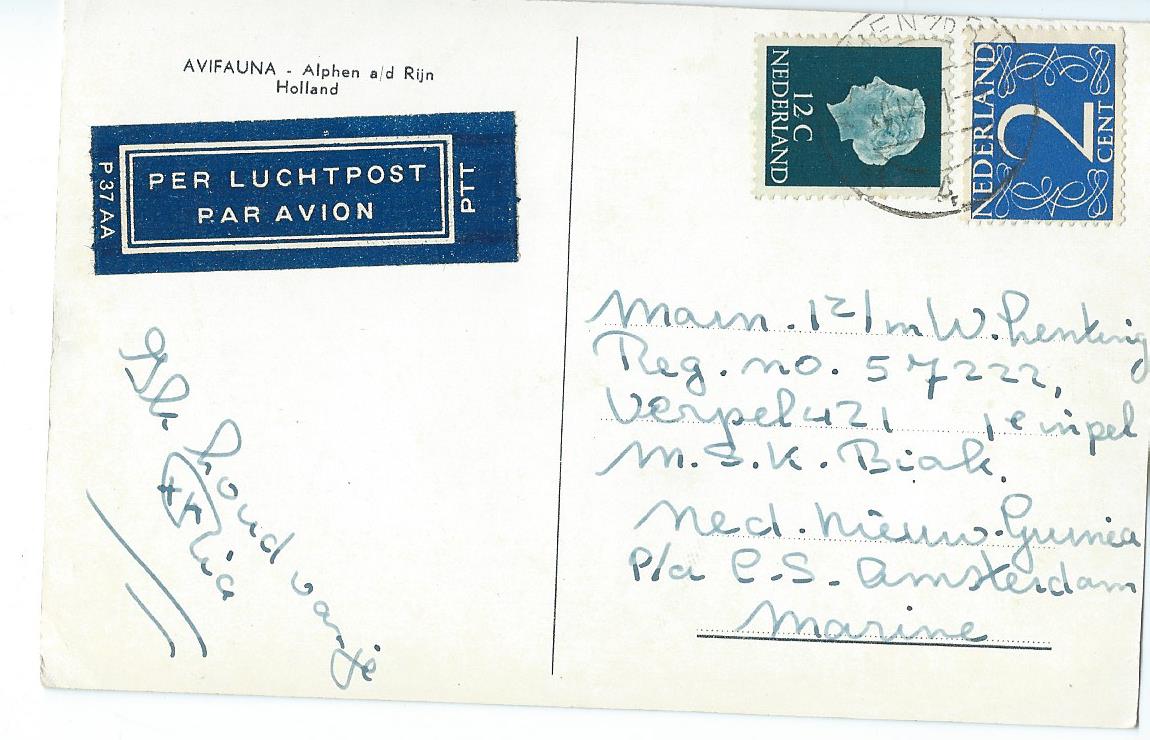 AVIFAUNA - Alphen a/d Rijn
Holland
P 37 AA
PER LUCHTPOST
PAR AVION
PTT
12 C
NEDERLAND
NEDERLAND
2
CENT
Ik houd van je
Ria
Marn. 1e/m W. Lenting
Reg. no. 57222,
Verpel 421 1e inpel
M.S.K. Biak.
Ned. Nieuw. Guinea
P/a C.S. Amsterdam
Marine